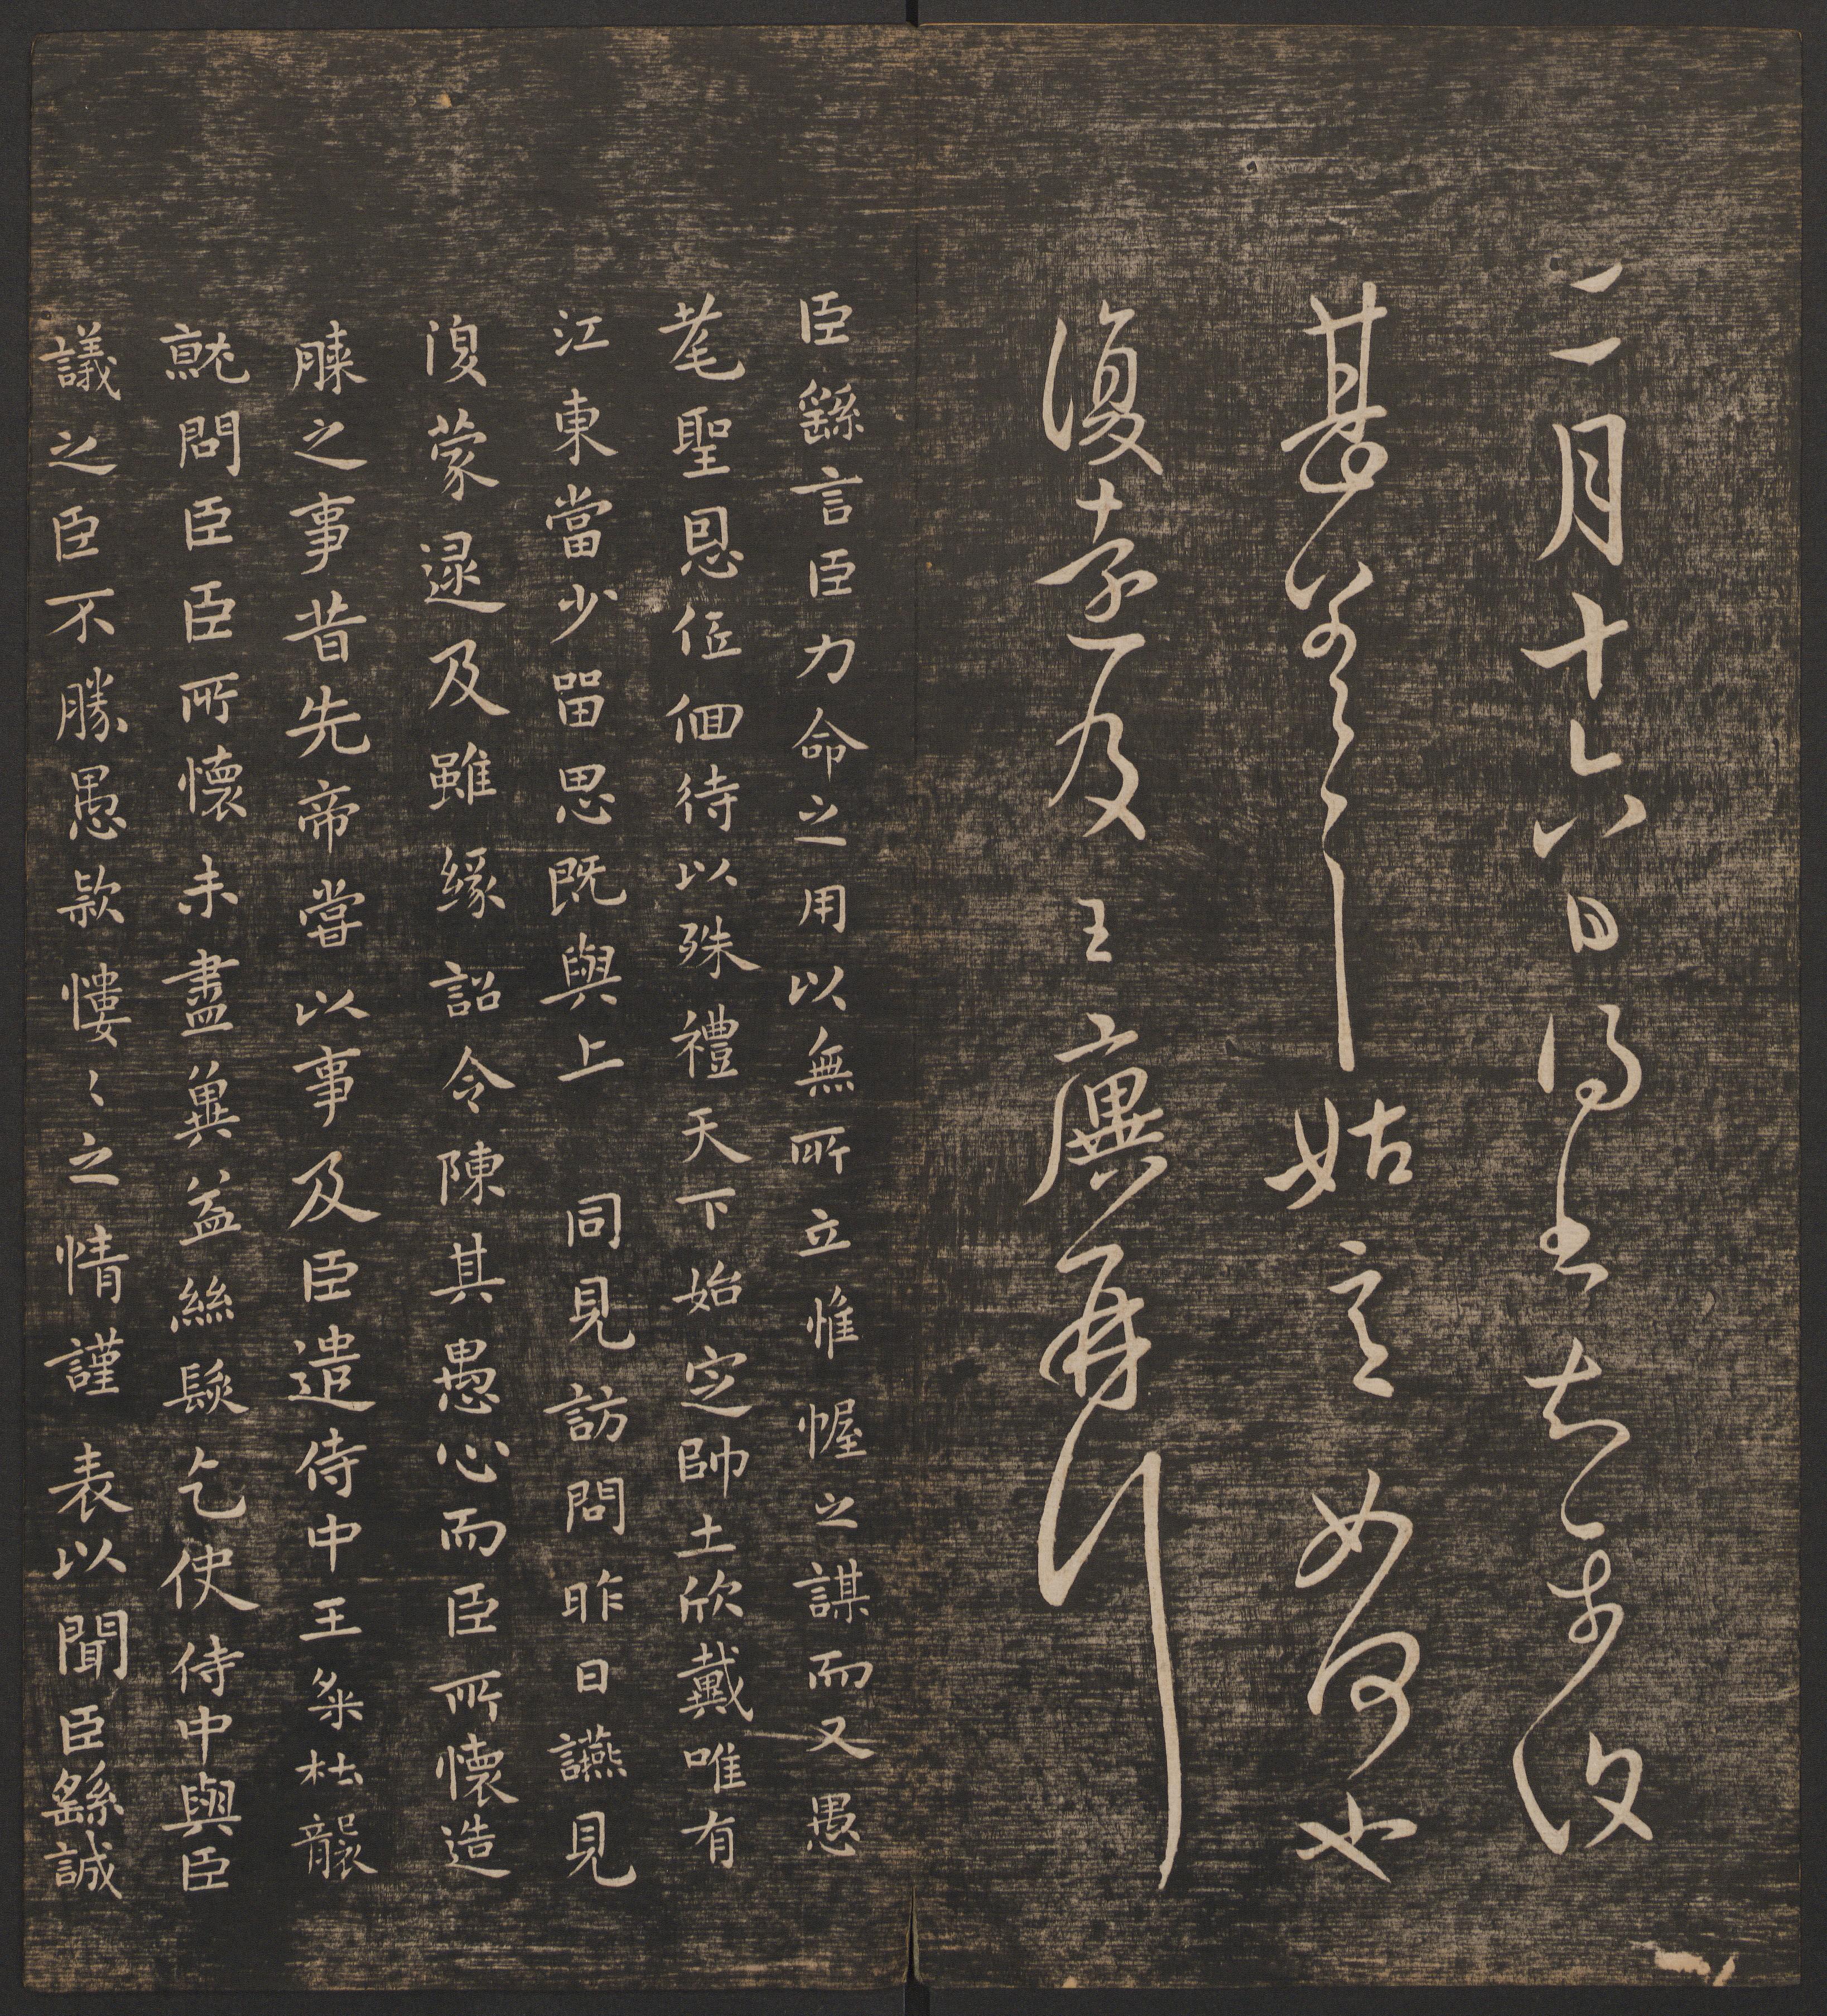 二月十六日得書知
甚姑意如何也
復及王廙再行
臣繇言臣力命之用以無所立惟幄之謀而又愚
耄聖恩低佪待以殊禮天下始定帥土欣戴唯有
江東當少留思既與上同見訪問昨日讌見
復蒙逮及雖緣詔令陳其愚心而臣所懷造
膝之事昔先帝嘗以事及臣遣侍中王粲杜襲
就問臣臣所懷未盡冀益絲髮乞使侍中與臣
議之臣不勝愚款慺〻之情謹表以聞臣繇誠